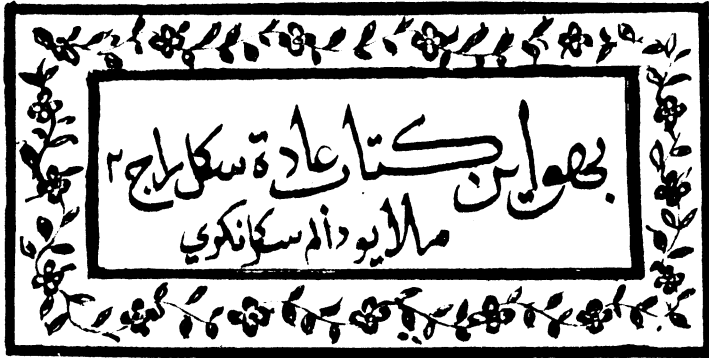 بهو اين كتاب عادة سكل راج٢
ملايو دالم سكل نكري